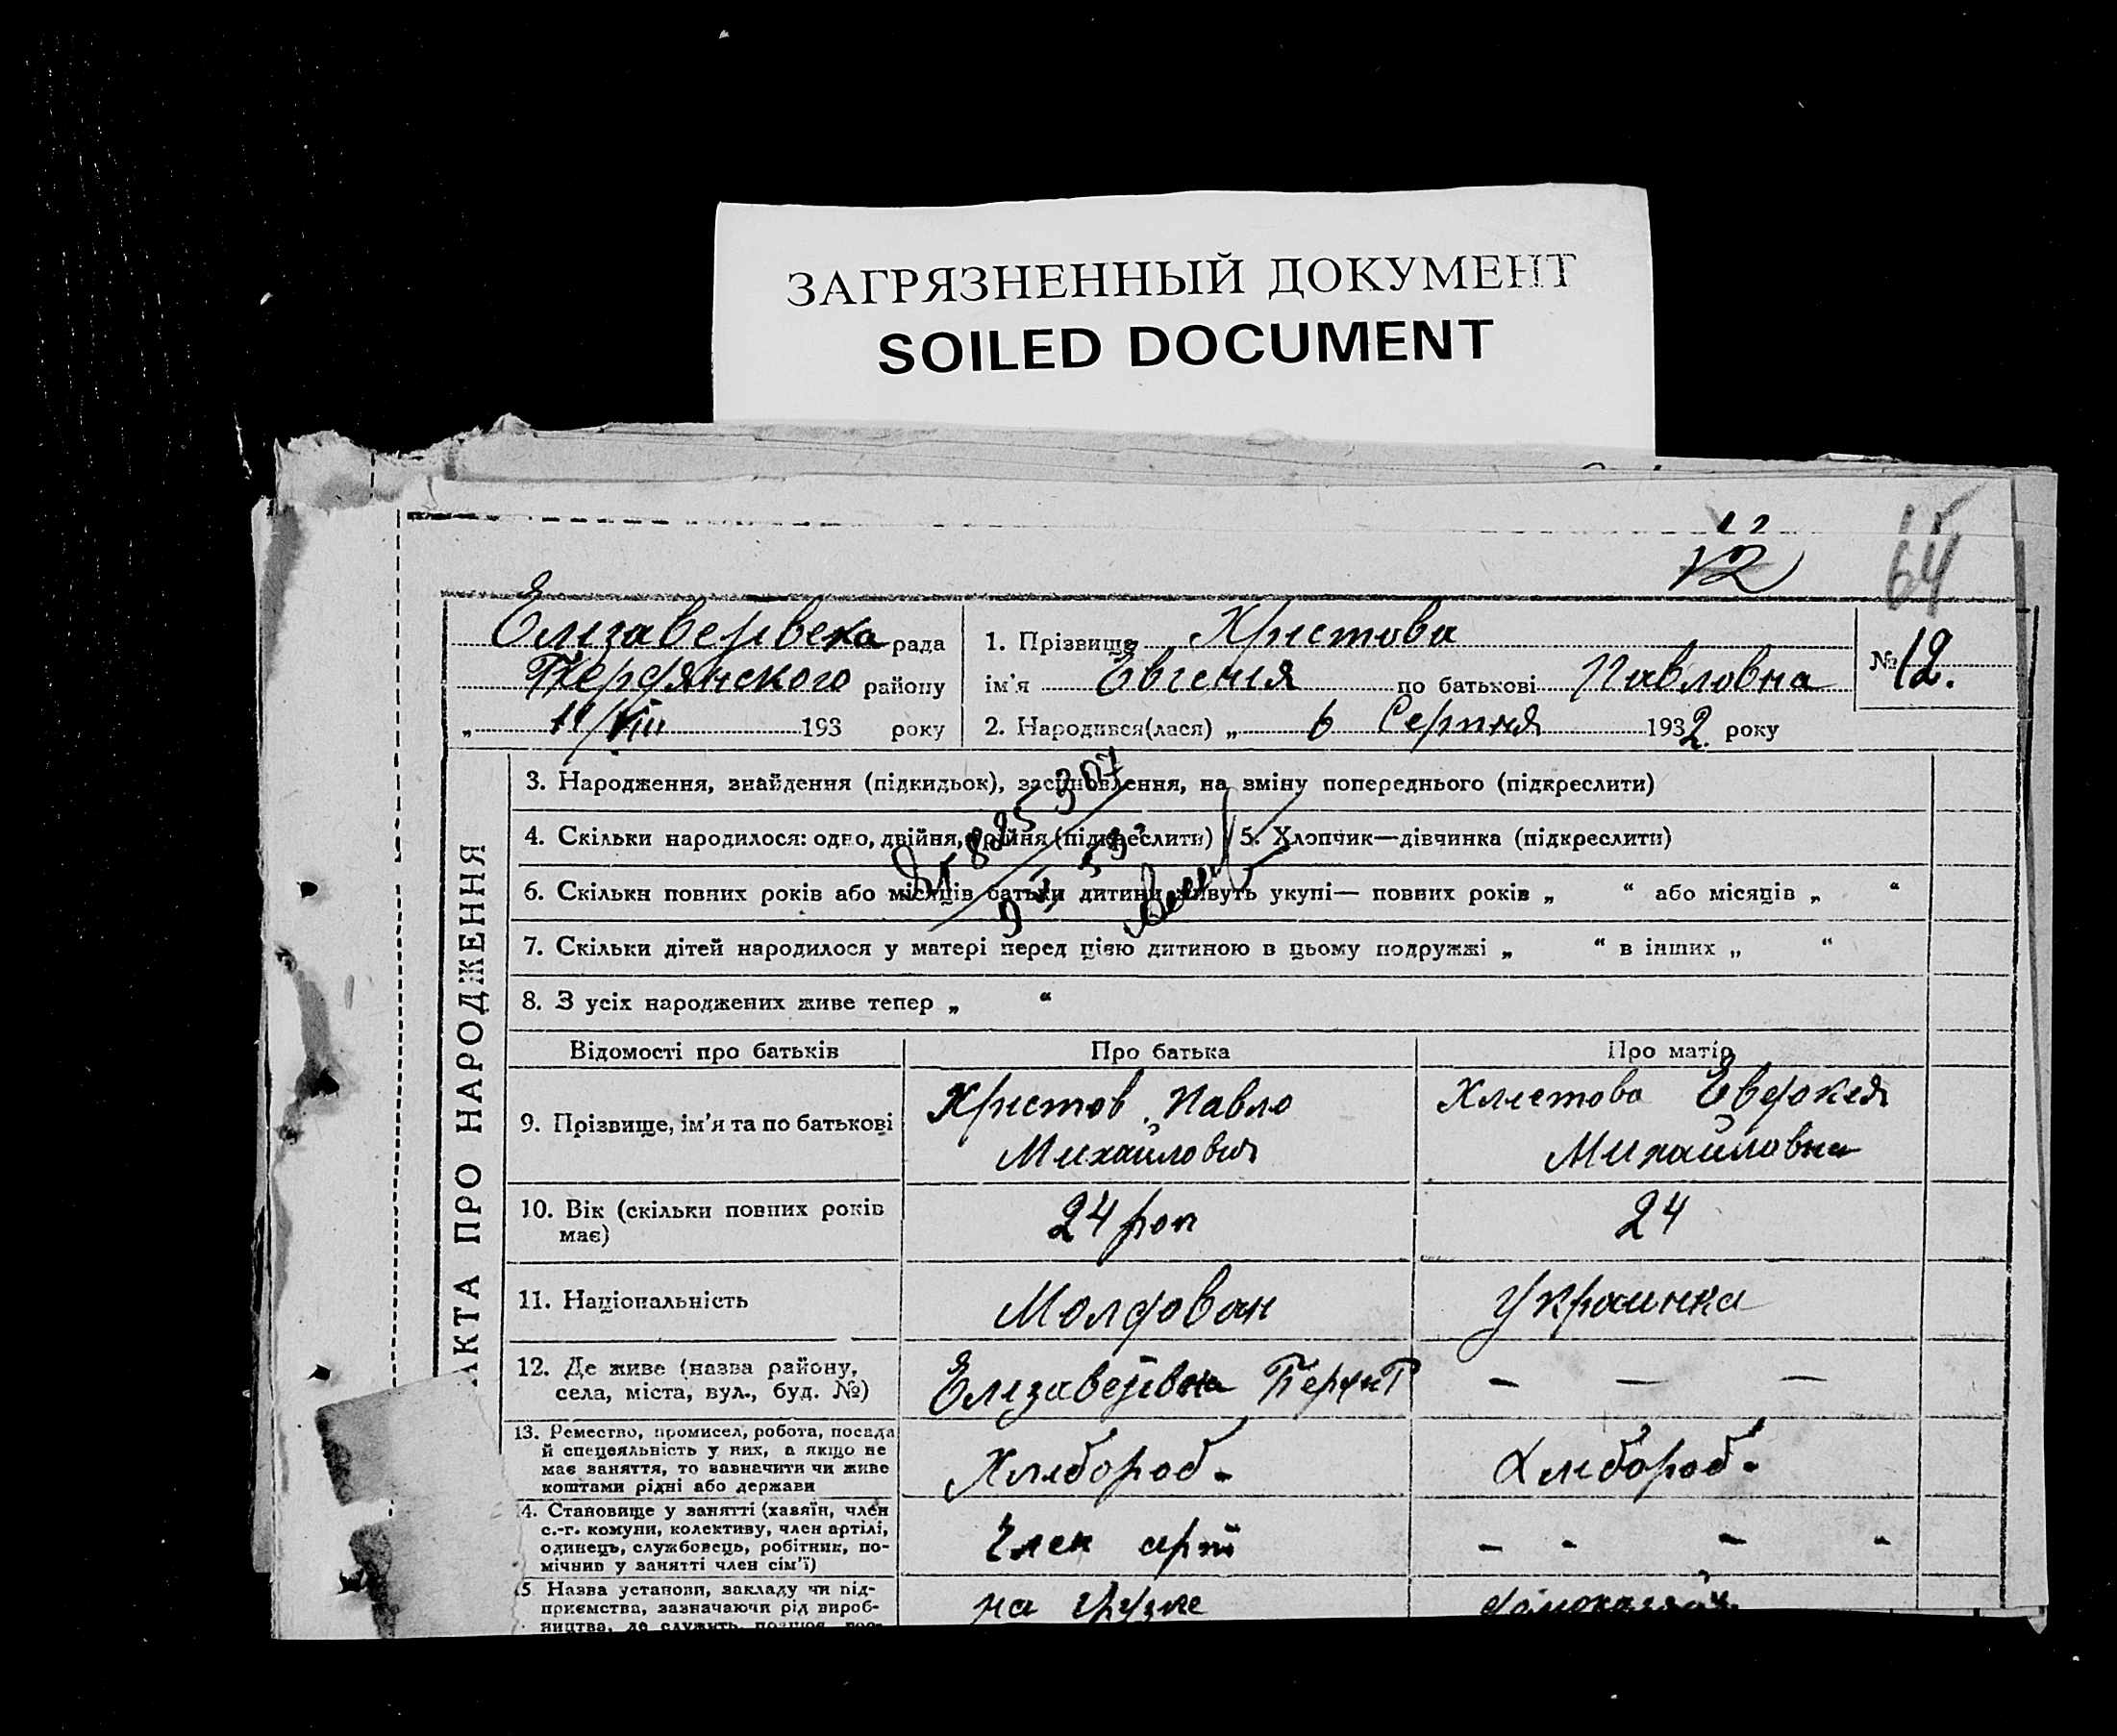 ЗАГРЯЗНЕННЫЙ ДОКУМЕНТ
SOILED DOCUMENT
12
12
64
рада
району
11/VIII 193 року
1. Прізвище Христова
ім'я Евгения по батькові Павловна
2. Народився(лася) „ 6 Серпня 1932 року
№ 12.
АКТА ПРО НАРОДЖЕННЯ
3. Народження, знайдення (підкидьок), засиновлення, на зміну попереднього (підкреслити)
4. Скільки народилося: одно, двійня, трійня (підкреслити) 5. Хлопчик—дівчинка (підкреслити)
6. Скільки повних років або місяців батьки дитини живуть укупі— повних років „ “ або місяців „ “
7. Скільки дітей народилося у матері перед цією дитиною в цьому подружжі „ “ в інших „ “
8. З усіх народжених живе тепер „ “
Відомості про батьків Про батька Про матір
9. Прізвище, ім'я та по батькові
Христов Павло
Михайлович
Христова Евдокия
Михайловна
10. Вік (скільки повних років
має)
24 рок
24
11. Національність Молдован Украинка
12. Де живе (назва району,
села, міста, вул., буд. №)
— — —
13. Ремество, промисел, робота, посада
й спецеяльність у них, а якщо не
має заняття, то зазначити чи живе
коштами рідні або держави
Хлибороб. Хлибороб.
14. Становище у занятті (хазяїн, член
с.-г. комуни, колективу, член артілі,
одинець, службовець, робітник, по-
мічнив у занятті член сім'ї)
Член арті
- - - -
15. Назва установи, закладу чи під-
приємства, зазначаючи рід вироб-
ництва, де служить,
на